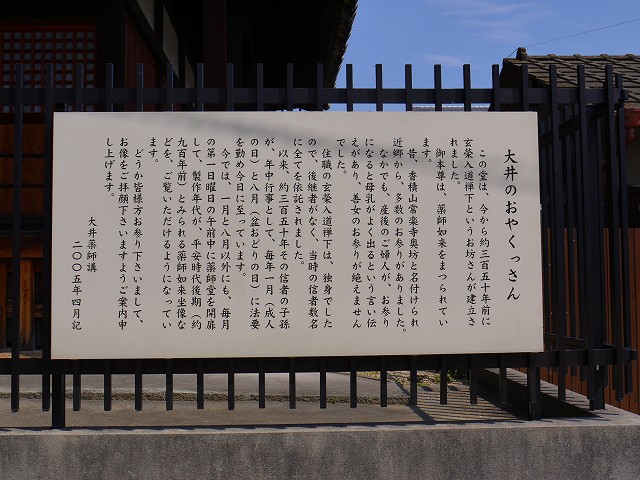 大井のおやくっさん
この堂は、今から約三百五十年前に
玄榮入道禅下というお坊さんが建立さ
れました。
御本尊は、薬師如来をまつられてい
ます。
昔、香積山常楽寺奥坊と名付けられ
近郷から、多数のお参りがありました。
なかでも、産後のご婦人が、お参り
になると母乳がよく出るという言い伝
えがあり、善女のお参りが絶えません
でした。
住職の玄榮入道禅下は、独身でした
ので、後継者がなく、当時の信者数名
に全てを依託されました。
以来、約三百五十年その信者の子孫
が、年中行事として、毎年一月（成人
の日）と八月（盆おどりの日）に法要
を勤め今日に至っています。
今では、一月と八月以外にも、毎月
の第一日曜日の午前中に薬師堂を開扉
して、製作年代が、平安時代後期（約
九百年前）とみられる薬師如来坐像な
どを、ご覧いただけるようになってい
ます。
どうか皆様方お参り下さいまして、
お像をご拝顔下さいますようご案内申
し上げます。
大井薬師講
二〇〇五年四月記